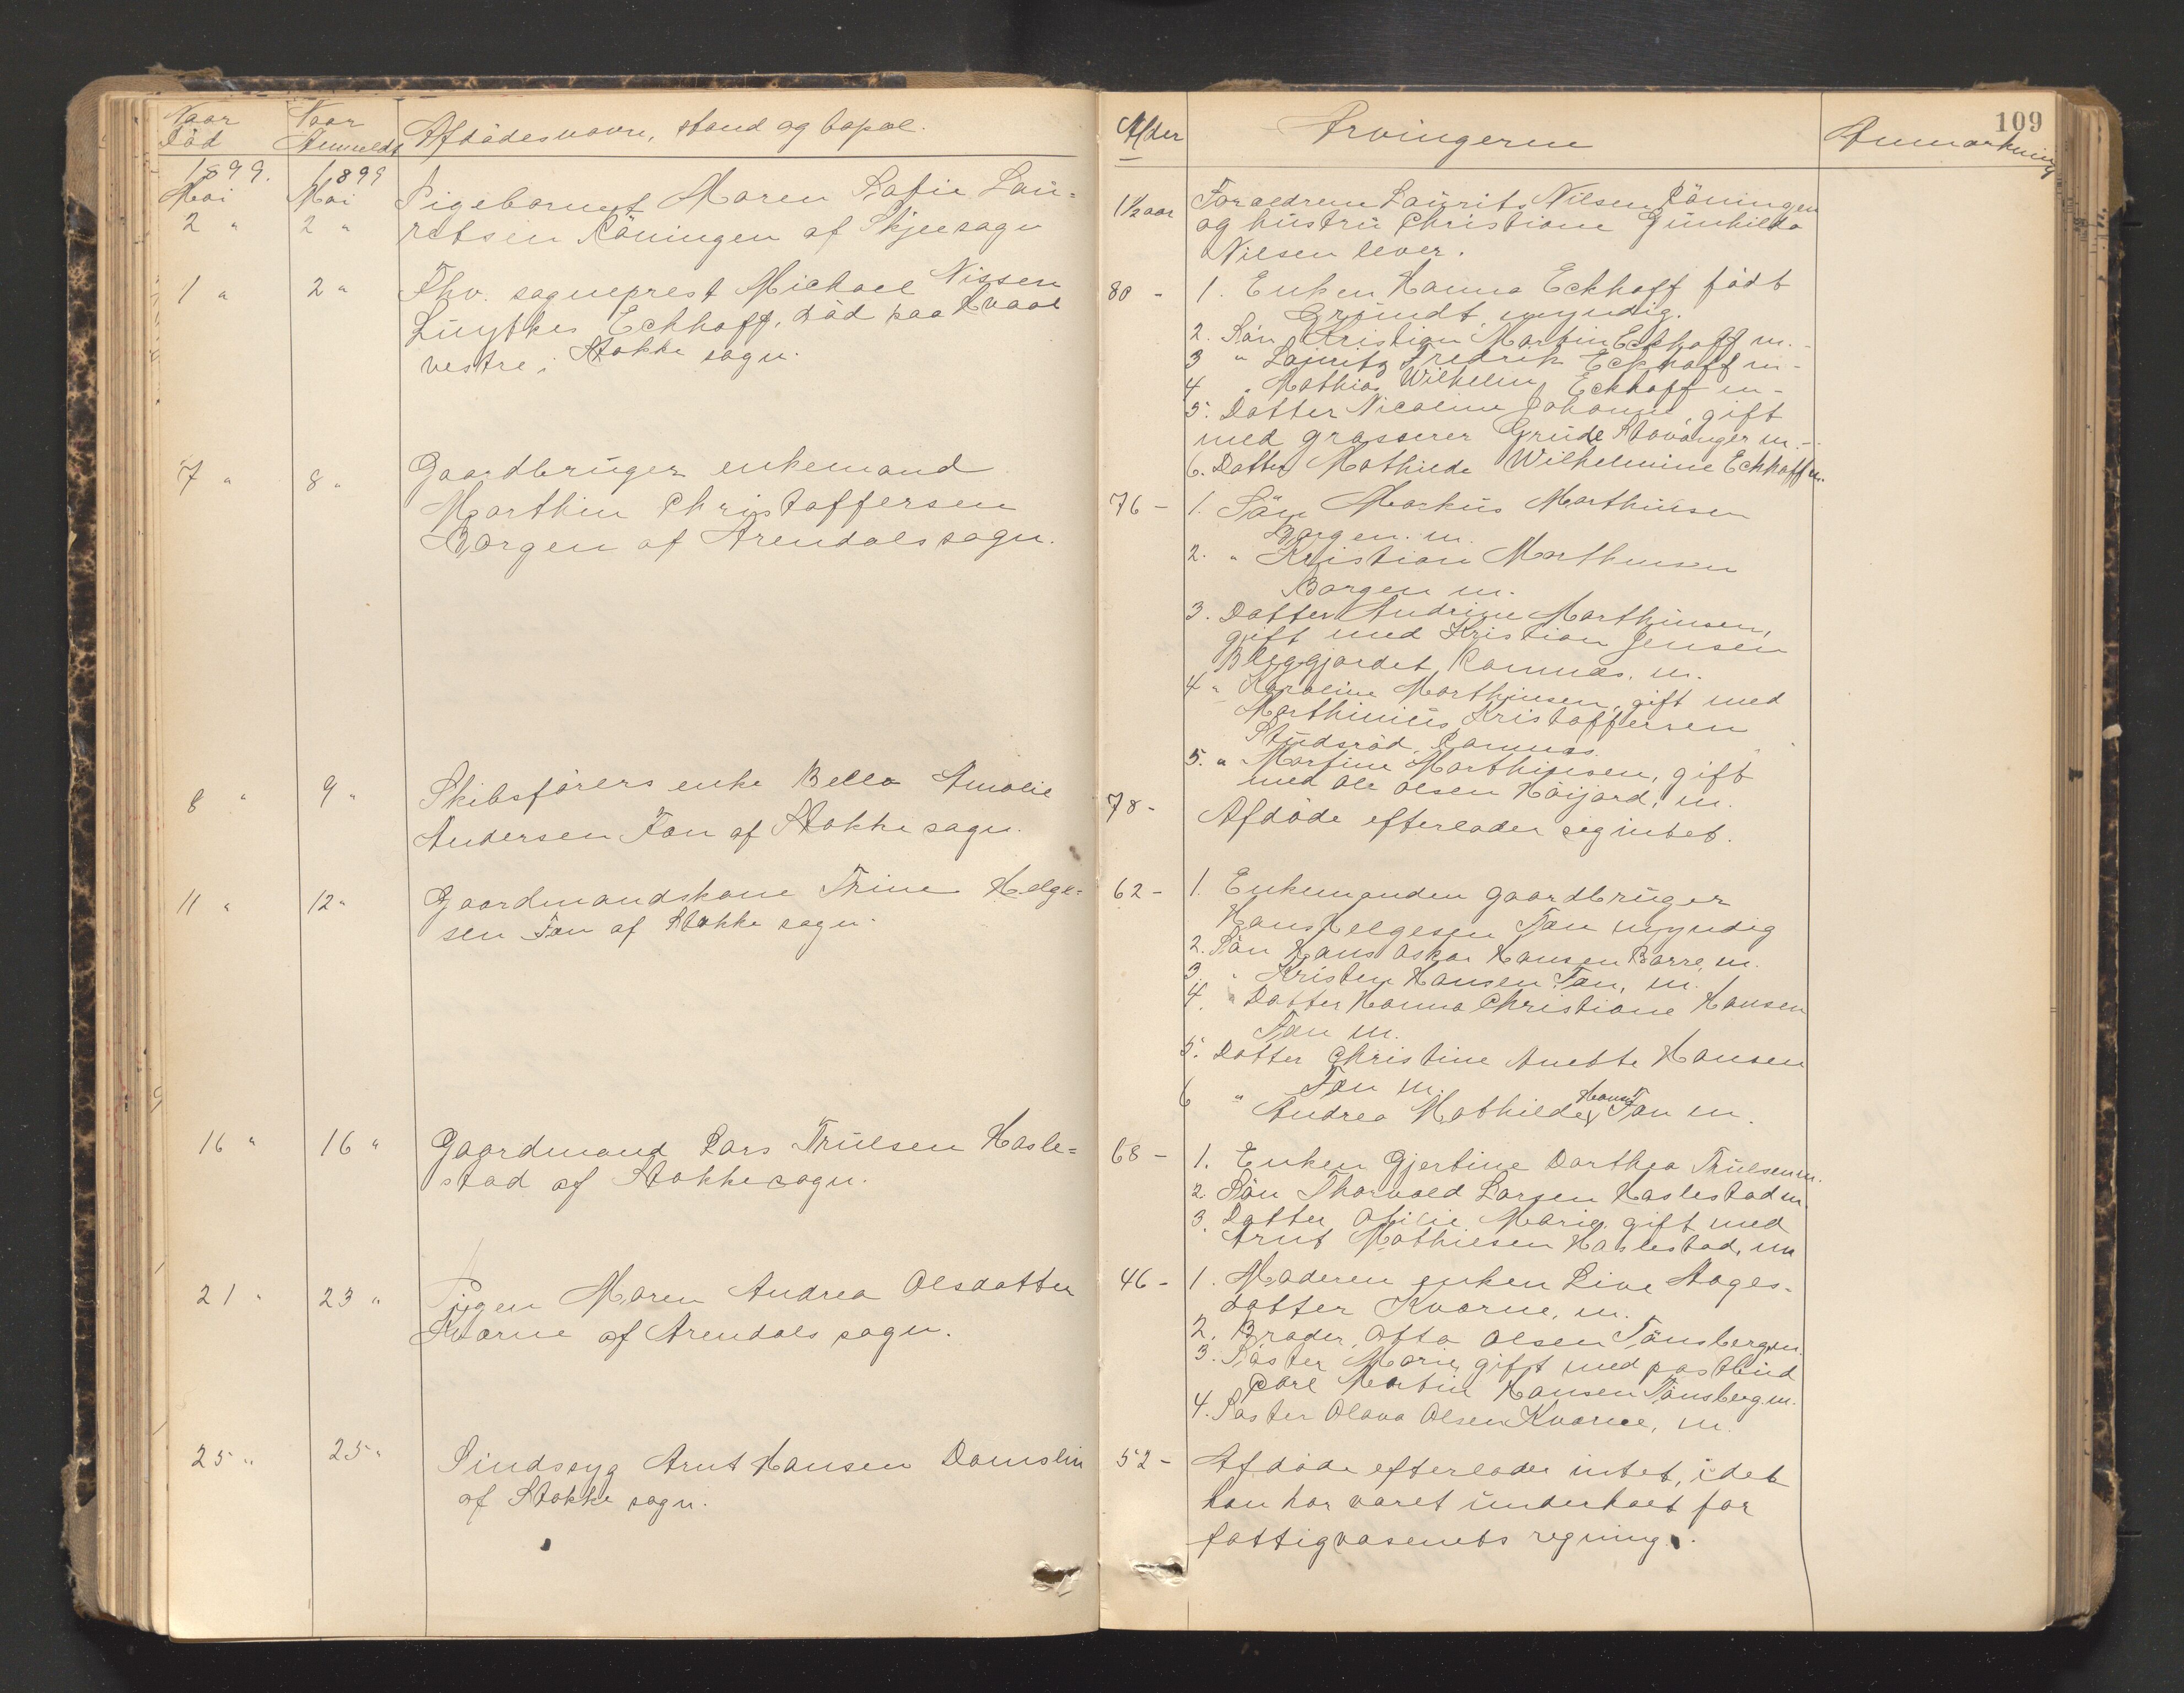 Naar Død
Naar Anmeldt
Afdødes navn, stand og bopæl.
1899. 1899
Mai Mai
2 " 2 " Pigebarnet Maren Sofie Lau-
ritsen Röningen af Skjeesogn
1 " 2 " Fhv. sogneprest Michael Nissen
Luytkes Eckhoff, död paa Kvaal
vestre i Stokke sogn.
7 " 8 " Gaardbruger enkemand
Marthin Christoffersen
Borgen af Arendals sogn.
8 " 9 " Skibsförers enke Bella Amalie
Andersen Fan af Stokke sogn.
11 " 12 " Gaardmandskone Trine Helge-
sen Fan af Stokke sogn.
16 " 16 " Gaardmand Lars Trulsen Hasle-
stad af Stokke sogn.
21 " 23 " Pigen Maren Andrea Olsdatter
Kvarne af Arendals sogn.
25 " 25 " Sindssyg Arnt Hansen Damslin
af Stokke sogn.
109
Alder
Arvingerne
Anmærkning
1½ aar Foraeldrene Laurits Nilsen Röningen
og hustru Christiane Gunhilda
Nilsen lever.
80 - 1. Enken Hanna Eckhoff födt
Grundt, myndig.
2. Sön Kristian Martin Eckhoff m. -
3 " Lauritz Fredrik Eckhoff m -
4 " Mathias Wilhelm Eckhoff m -
5. Datter Nicoline Johanne, gift
med grosserer Grude Stavanger m. -
6. Datter Mathilde Wilhelmine Eckhoff m.
76 - 1. Sön Markus Marthinsen
Borgen. m.
2. " Kristian Marthinsen
Borgen m.
3. Datter Andrine Marthinsen,
gift med Kristian Jensen
Bleggjordet, Ramnæs. m.
4 " Karoline Marthinsen, gift med
Marthinius Kristoffersen
Studsröd, Ramnæs.
5. " Martine Marthinsen, gift
med Ole Olsen Höijord, m.
78 - Afdöde efterlader seg intet.
62 - 1. Enkemanden gaardbruger
Hans Helgesen Fan myndig
2. Sön Hans Oskar Hansen Borre, m.
3. " Kristen Hansen Fan, m.
4. " Datter Hanna Christiane Hansen
Fan m.
5. Datter Christine Anette Hansen
Fan m.
6 " Andrea Mathilde Hansen Fan m.
68 - 1. Enken Gjertine Dorthea Trulsen m.
2. Sön Thorvald Larsen Haslestad m.
3. Datter Otilie Marie gift med
Arnt Mathiesen Haslestad, m
46 - 1. Moderen enken Live Aages-
datter Kvarne, m.
2. Broder Otto Olsen Tönsberg, m.
3. Söster Marie, gift med postbud
Carl Martin Hansen Tönsberg. m.
4. Söster Olava Olsen Kvarne, m.
52 - Afdöde efterlader intet, idet
han har været underholdt for
fattigvæsenets regning.